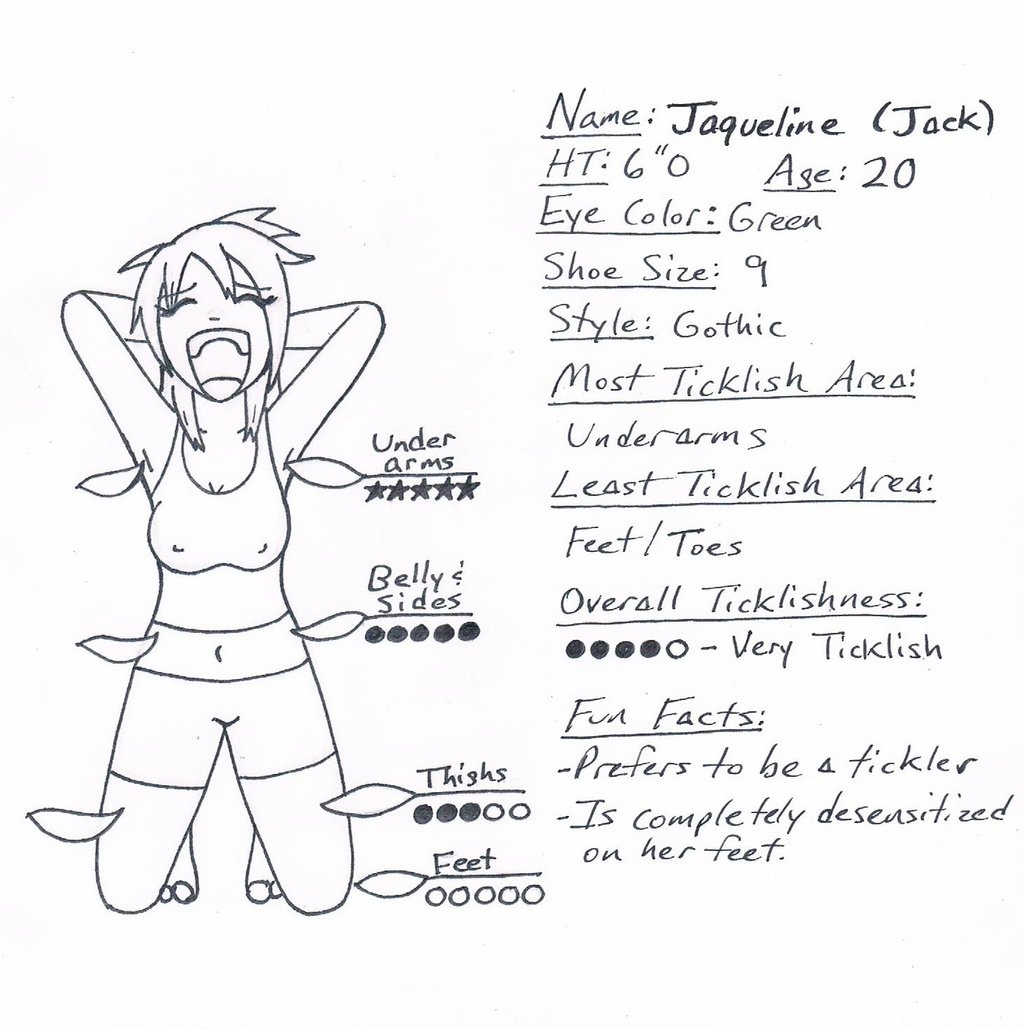 Name: Jaqueline (Jack)
HT: 6"0 Age: 20
Eye Color: Green
Shoe Size: 9
Style: Gothic
Most Ticklish Area:
Underarms
Least Ticklish Area:
Feet/Toes
Overall Ticklishness:
●●●●○ - Very Ticklish
Fun Facts:
-Prefers to be a tickler
-Is completely desensitized
on her feet.
Under
arms
★★★★★
Belly &
Sides
●●●●●
Thighs
●●●○○
Feet
○○○○○